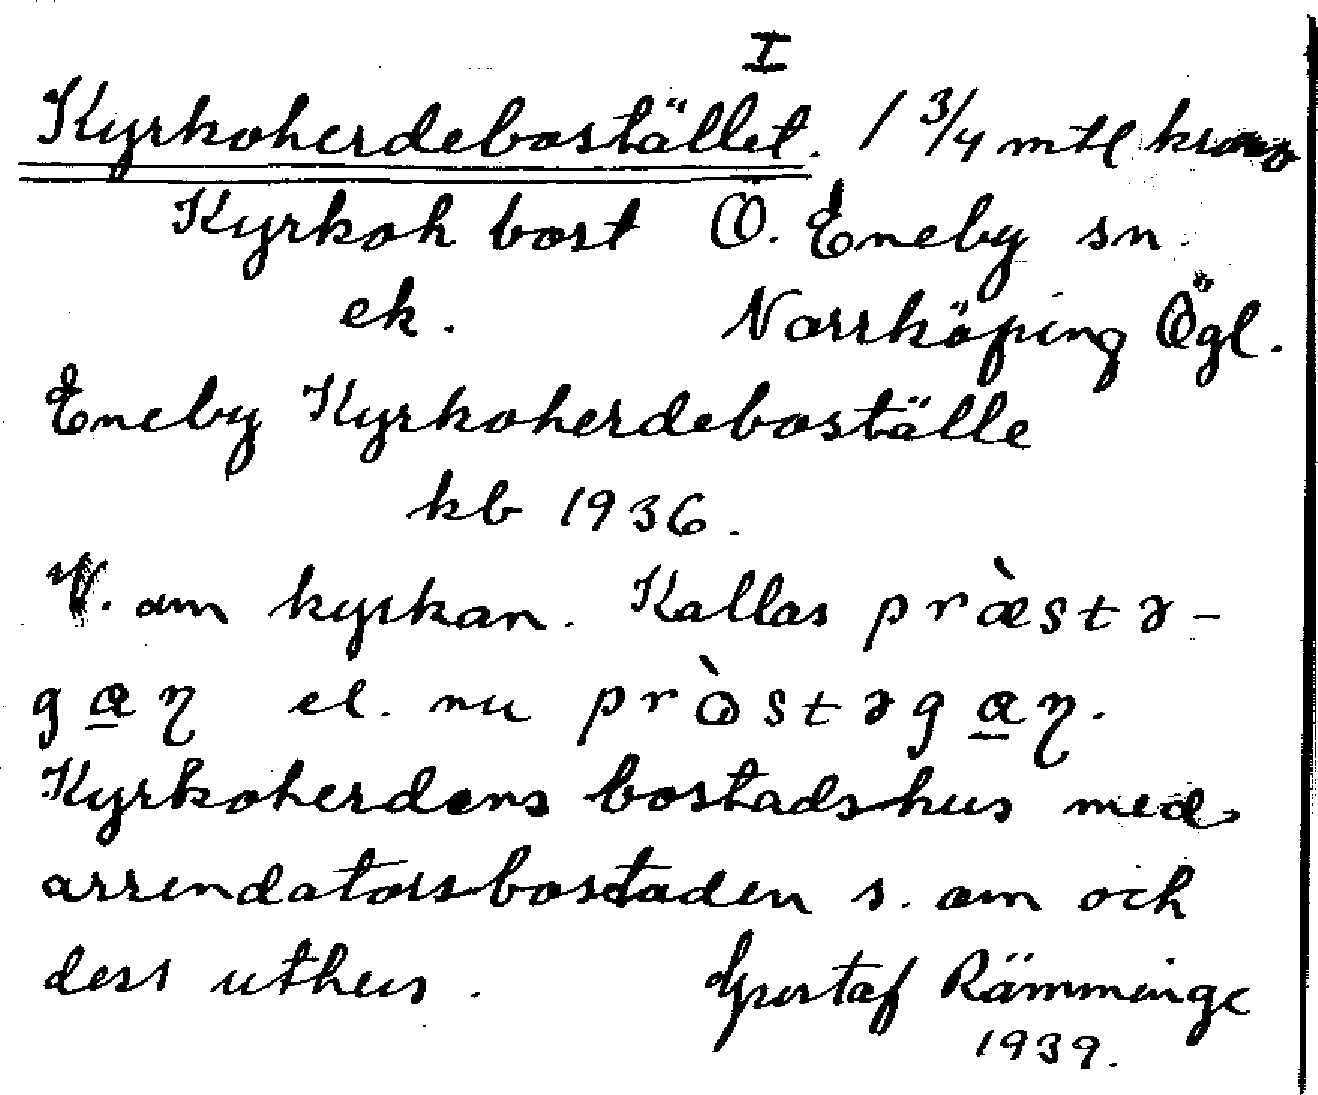 I
Kyrkoherdebostället. 1 3/4 mtl krono
Kyrkoh bost Ö. Eneby sn
ek. Norrköping Ögl.
Eneby Kyrkoherdeboställe
kb 1936.
V. om kyrkan. Kallas præ̀stə-
gæ̱ɳ el. nu prɷ̀stəgæ̱ɳ.
Kyrkoherdens bostadshus med
arrendatorsbostaden s. om och
dess uthus. Gustaf Rämminge
1939.